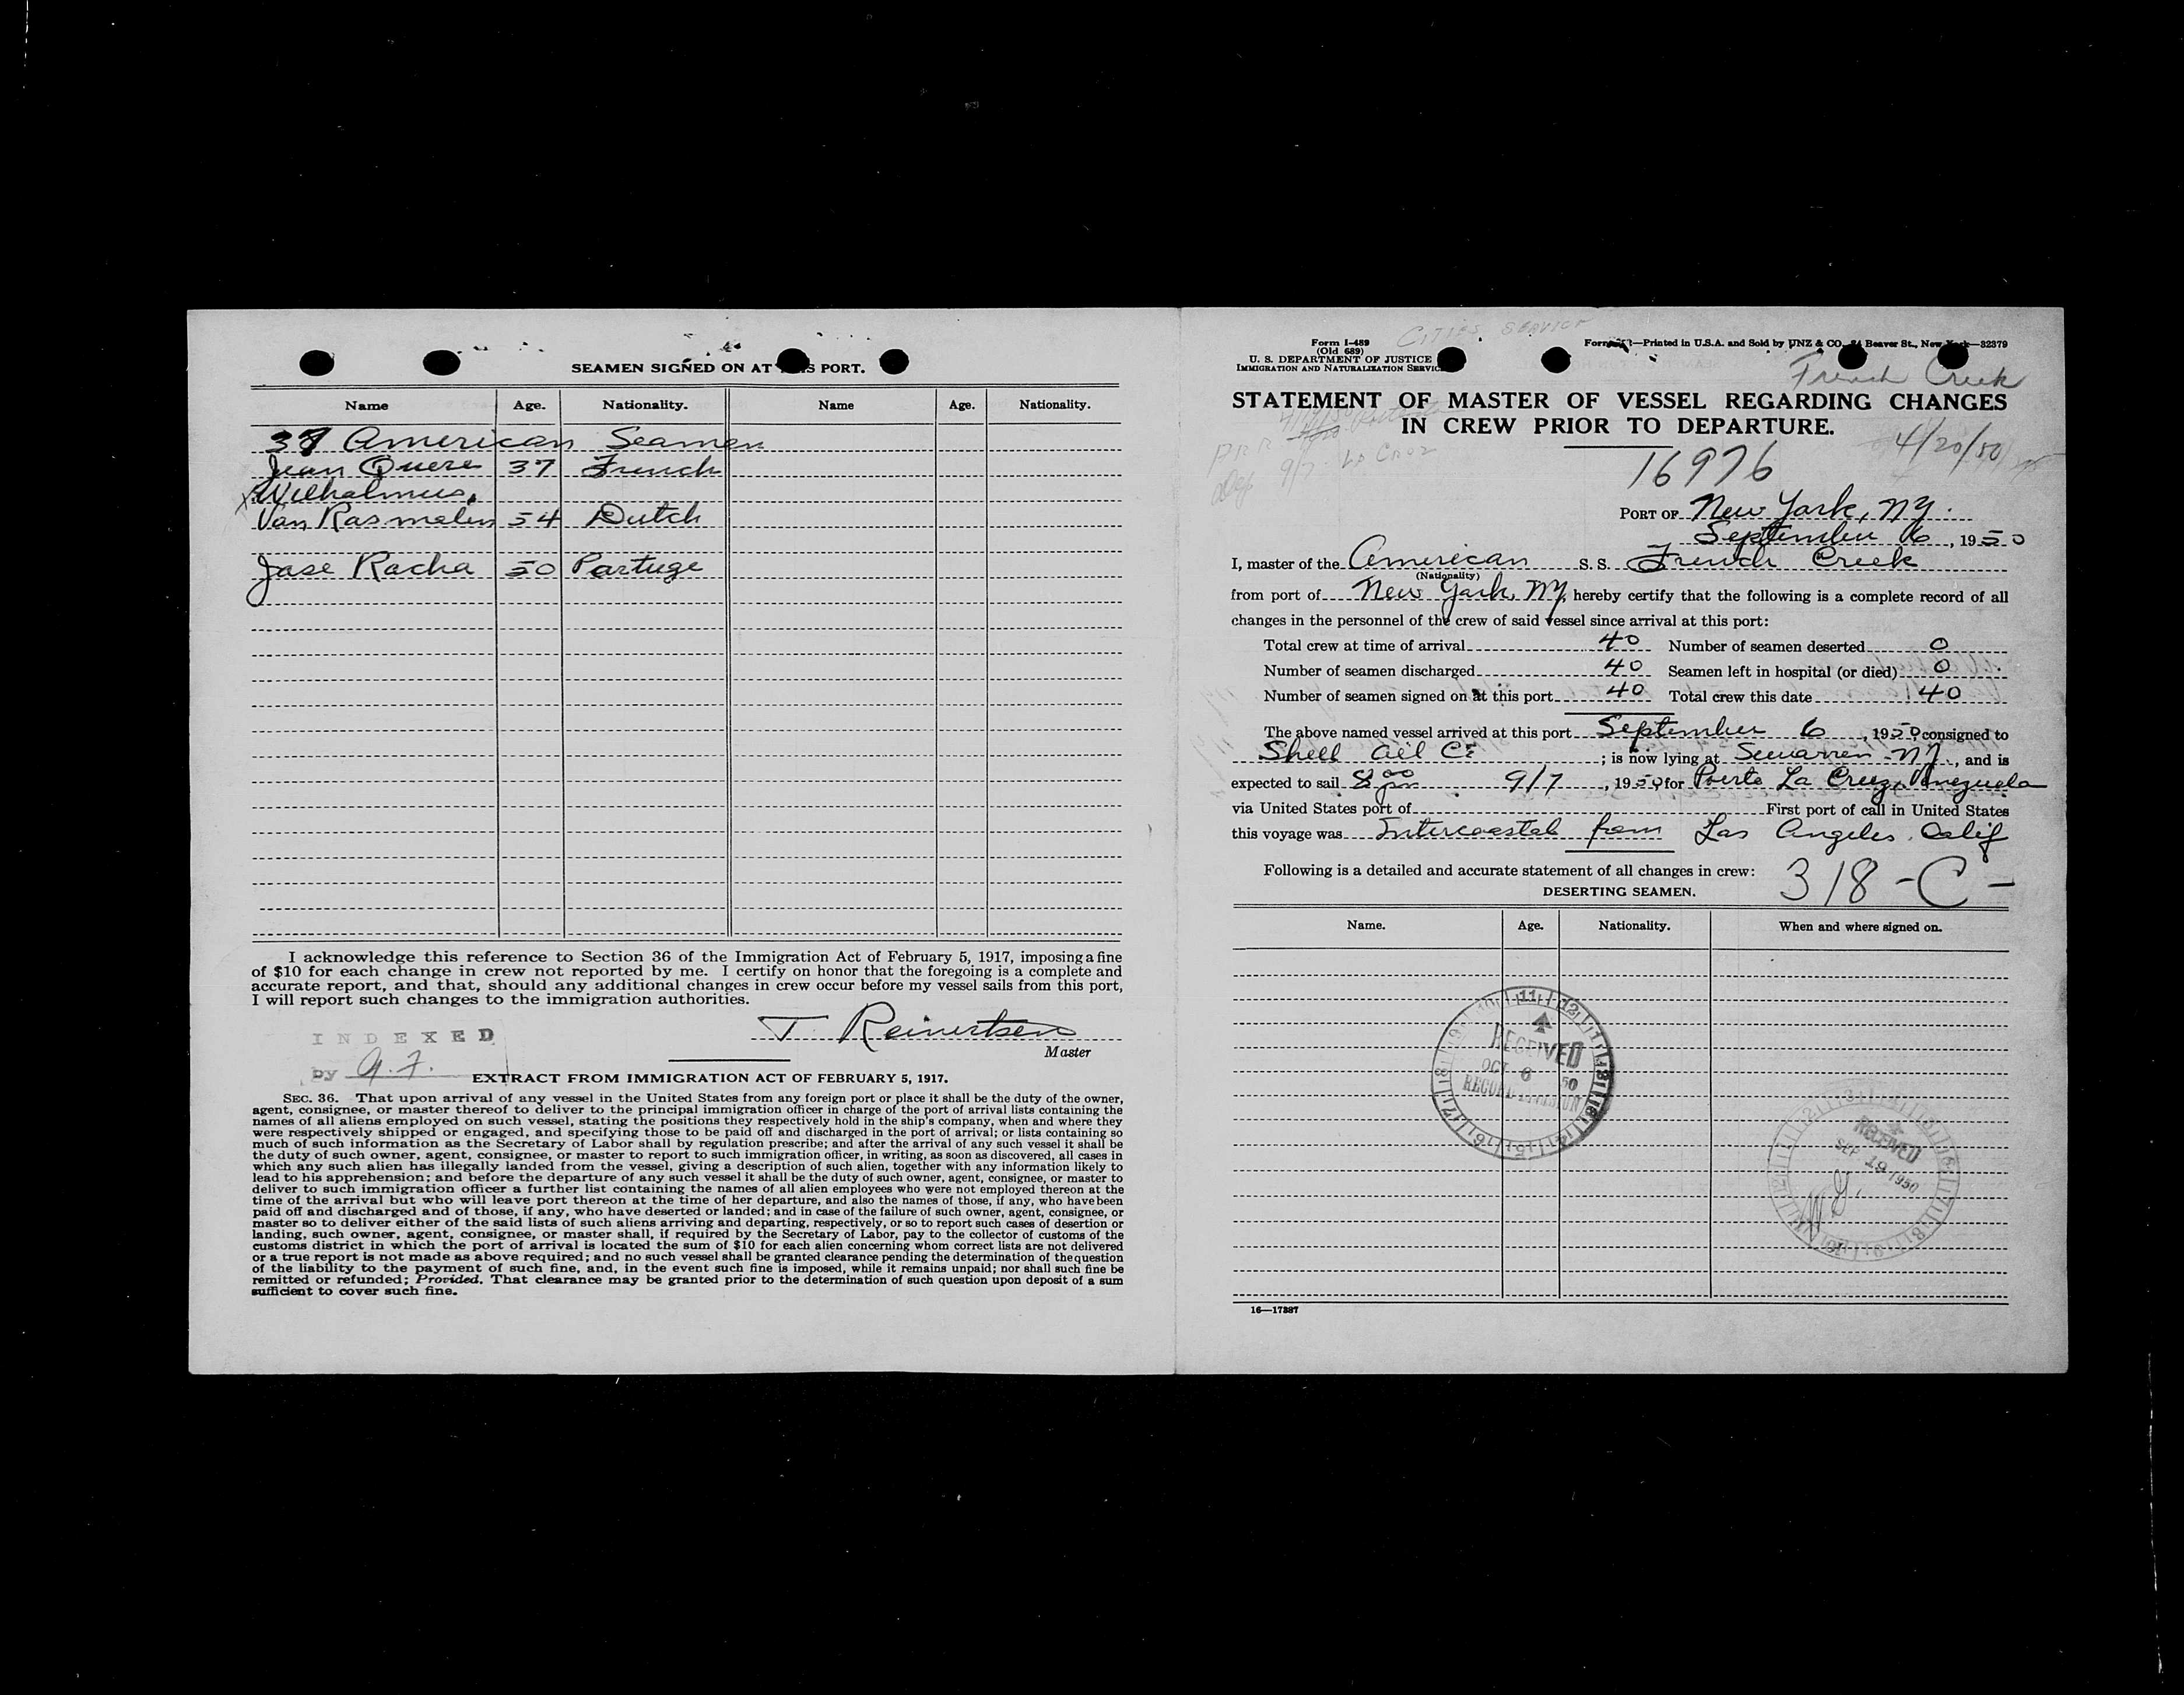 SEAMEN SIGNED ON AT THIS PORT.
Name Age. Nationality. Name Age. Nationality.
37 American Seamen
Jean Quere 37 French
X Wilhalmus,
Van Rasmalen 54 Dutch
Jase Racha 50 Partuge
I acknowledge this reference to Section 36 of the Immigration Act of February 5, 1917, imposing a fine
of $10 for each change in crew not reported by me. I certify on honor that the foregoing is a complete and
accurate report, and that, should any additional changes in crew occur before my vessel sails from this port,
I will report such changes to the immigration authorities.
T. Reinertsen
Master
INDEXED
by a.F.
EXTRACT FROM IMMIGRATION ACT OF FEBRUARY 5, 1917.
SEC. 36. That upon arrival of any vessel in the United States from any foreign port or place it shall be the duty of the owner,
agent, consignee, or master thereof to deliver to the principal immigration officer in charge of the port of arrival lists containing the
names of all aliens employed on such vessel, stating the positions they respectively hold in the ship's company, when and where they
were respectively shipped or engaged, and specifying those to be paid off and discharged in the port of arrival; or lists containing so
much of such information as the Secretary of Labor shall by regulation prescribe; and after the arrival of any such vessel it shall be
the duty of such owner, agent, consignee, or master to report to such immigration officer, in writing, as soon as discovered, all cases in
which any such alien has illegally landed from the vessel, giving a description of such alien, together with any information likely to
lead to his apprehension; and before the departure of any such vessel it shall be the duty of such owner, agent, consignee, or master to
deliver to such immigration officer a further list containing the names of all alien employees who were not employed thereon at the
time of the arrival but who will leave port thereon at the time of her departure, and also the names of those, if any, who have been
paid off and discharged and of those, if any, who have deserted or landed; and in case of the failure of such owner, agent, consignee, or
master so to deliver either of the said lists of such aliens arriving and departing, respectively, or so to report such cases of desertion or
landing, such owner, agent, consignee, or master shall, if required by the Secretary of Labor, pay to the collector of customs of the
customs district in which the port of arrival is located the sum of $10 for each alien concerning whom correct lists are not delivered
or a true report is not made as above required; and no such vessel shall be granted clearance pending the determination of the question
of the liability to the payment of such fine, and, in the event such fine is imposed, while it remains unpaid; nor shall such fine be
remitted or refunded; Provided, That clearance may be granted prior to the determination of such question upon deposit of a sum
sufficient to cover such fine.
CITIES SERVICE
Form I-489
(Old 689)
U. S. DEPARTMENT OF JUSTICE
IMMIGRATION AND NATURALIZATION SERVICE
Printed in U.S.A. and Sold by UNZ & CO. 24 Beaver St., New York—32379
French Creek
STATEMENT OF MASTER OF VESSEL REGARDING CHANGES
IN CREW PRIOR TO DEPARTURE.
4/20/50
16976
9/7 La Cruz
PORT OF New York, NY.
September 6, 1950
I, master of the American S. S. French Creek
(Nationality)
from port of New York, NY, hereby certify that the following is a complete record of all
changes in the personnel of the crew of said vessel since arrival at this port:
Total crew at time of arrival 40 Number of seamen deserted 0
Number of seamen discharged 40 Seamen left in hospital (or died) 0
Number of seamen signed on at this port 40 Total crew this date 40
The above named vessel arrived at this port September 6, 1950, consigned to
Shell Oil Co; is now lying at Sewarren NJ, and is
expected to sail 8 00 pm 9/7, 1950 for Puerto La Cruz, Venezuela
via United States port of First port of call in United States
this voyage was Intercoastal from Los Angeles, Calif
Following is a detailed and accurate statement of all changes in crew: 318-C-
DESERTING SEAMEN.
Name. Age. Nationality. When and where signed on.
RECEIVED
OCT 6 50
RECORD DIVISION
RECEIVED
SEP 19 1950
16—17387